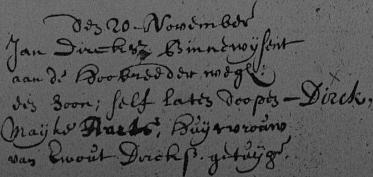 Den 20 November
Jan Dircksz Binnewijsent
aan de Hoobreeder wegh:
een Zoon; self laten doopen – Dirck,
Mayke Aarts, Huysvrouw
van Ewout Dircks. getuyge.